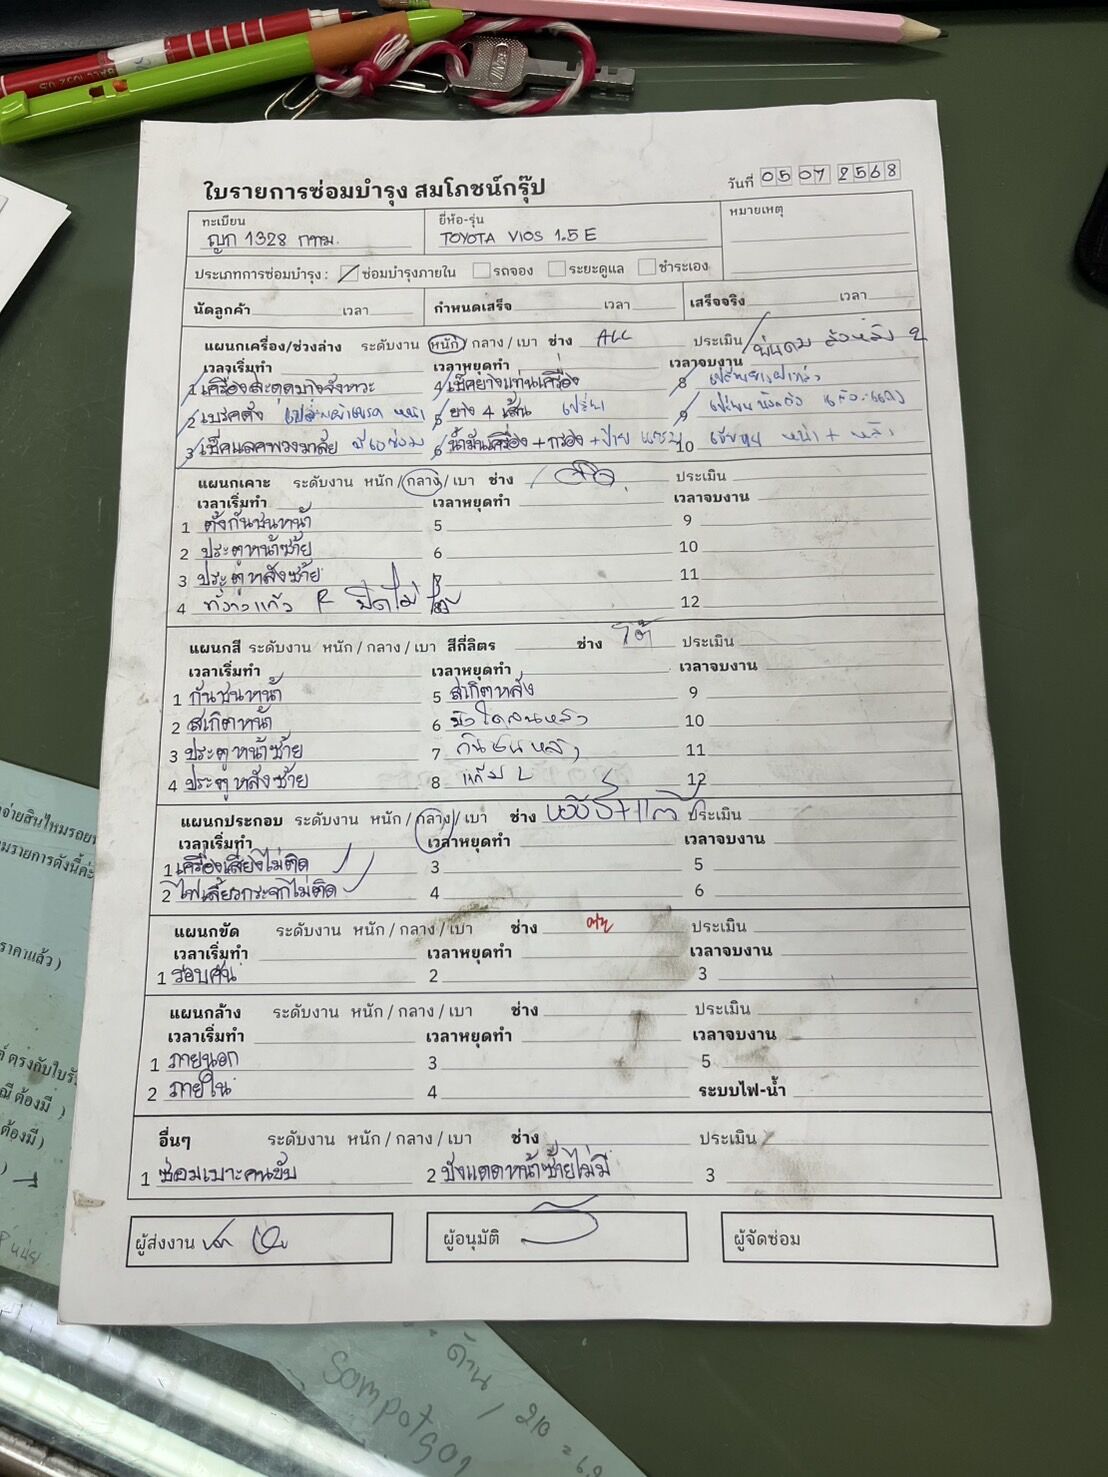 ใบรายการซ่อมบำรุง สมโภชน์กรุ๊ป
วันที่ 05 07 2568
ทะเบียน ญก 1328 กทม.
ยี่ห้อ-รุ่น TOYOTA VIOS 1.5 E
หมายเหตุ
ประเภทการซ่อมบำรุง : ซ่อมบำรุงภายใน รถจอง ระยะดูแล ชำระเอง
นัดลูกค้า เวลา กำหนดเสร็จ เวลา เสร็จจริง เวลา
แผนกเครื่อง/ช่วงล่าง ระดับงาน หนัก / กลาง / เบา ช่าง ALL ประเมิน
เวลาเริ่มทำ เวลาหยุดทำ เวลาจบงาน
1 เครื่องสะดุดบางจังหวะ 4 เช็คยางแท่นเครื่อง 8
2 เบรคดัง เปลี่ยนผ้าเบรค หน้า 5 ยาง 4 เส้น 9
3 เช็คแลคพวงมาลัย 6 น้ำมันเครื่อง + กรอง 10 หน้า + หลัง
แผนกเคาะ ระดับงาน หนัก / กลาง / เบา ช่าง ประเมิน
เวลาเริ่มทำ เวลาหยุดทำ เวลาจบงาน
1 ตั้งกันชนหน้า 5 9
2 ประตูหน้าซ้าย 6 10
3 ประตูหลังซ้าย 7 11
4 แก้ว R ปิดไม่ได้ 12
แผนกสี ระดับงาน หนัก / กลาง / เบา สีกี่ลิตร ช่าง ประเมิน
เวลาเริ่มทำ เวลาหยุดทำ เวลาจบงาน
1 กันชนหน้า 5 สเกิตหลัง 9
2 สเกิตหน้า 6 10
3 ประตูหน้าซ้าย 7 กันชนหลัง 11
4 ประตูหลังซ้าย 8 แก้ม L 12
แผนกประกอบ ระดับงาน หนัก / กลาง / เบา ช่าง ประเมิน
เวลาเริ่มทำ เวลาหยุดทำ เวลาจบงาน
1 เครื่องเสียงไม่ติด 3 5
2 ไฟเลี้ยวกระจกไม่ติด 4 6
แผนกขัด ระดับงาน หนัก / กลาง / เบา ช่าง ประเมิน
เวลาเริ่มทำ เวลาหยุดทำ เวลาจบงาน
1 รอบคัน 2 3
แผนกล้าง ระดับงาน หนัก / กลาง / เบา ช่าง ประเมิน
เวลาเริ่มทำ เวลาหยุดทำ เวลาจบงาน
1 ภายนอก 3 5
2 ภายใน 4 ระบบไฟ-น้ำ
อื่นๆ ระดับงาน หนัก / กลาง / เบา ช่าง ประเมิน
1 ซ่อมเบาะคนขับ 2 บังแดดหน้าซ้ายไม่มี 3
ผู้ส่งงาน ผู้อนุมัติ ผู้จัดซ่อม
ราคาแล้ว )
ต้องมี )
ต้องมี)
ด้าน / 210
Sompotgop